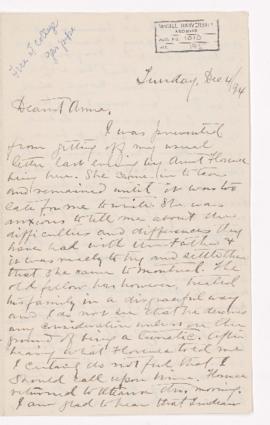 McGILL UNIVERSITY
ARCHIVES
ACC. NO. 1070
REF.
Sunday, Dec 4/94
Dearest Anne,
I was prevented
from getting off my usual
letter last evening by Aunt Florence
being here. She came in to tea
and remained until it was too
late for me to write. She was
anxious to tell me about the
difficulties and differences they
have had with
it was really to try and settle
that she came to Montreal. The
old fellow has however, treated
his family in a disgraceful way
and I do not see that he deserves
any consideration unless on the
ground of being a lunatic. After
hearing what Florence told me
I certainly do not feel that I
should call upon him. Florence
returned to Ottawa this morning.
I am glad to hear that